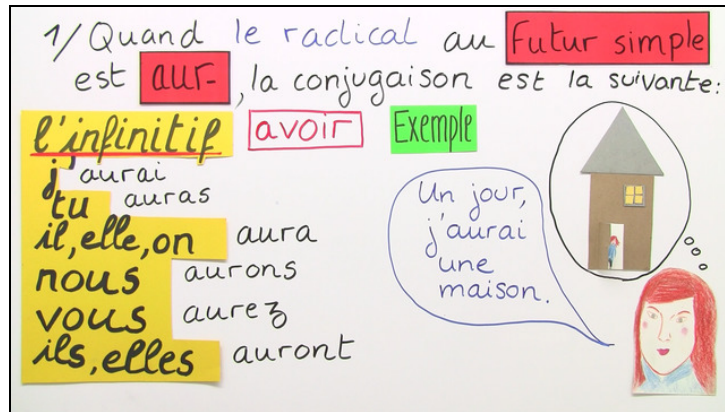 1/ Quand le radical au Futur simple
est aur-, la conjugaison est la suivante:
l'infinitif avoir Exemple
j' aurai
tu auras
il, elle, on aura
nous aurons
vous aurez
ils, elles auront
Un jour,
j'aurai
une
maison.